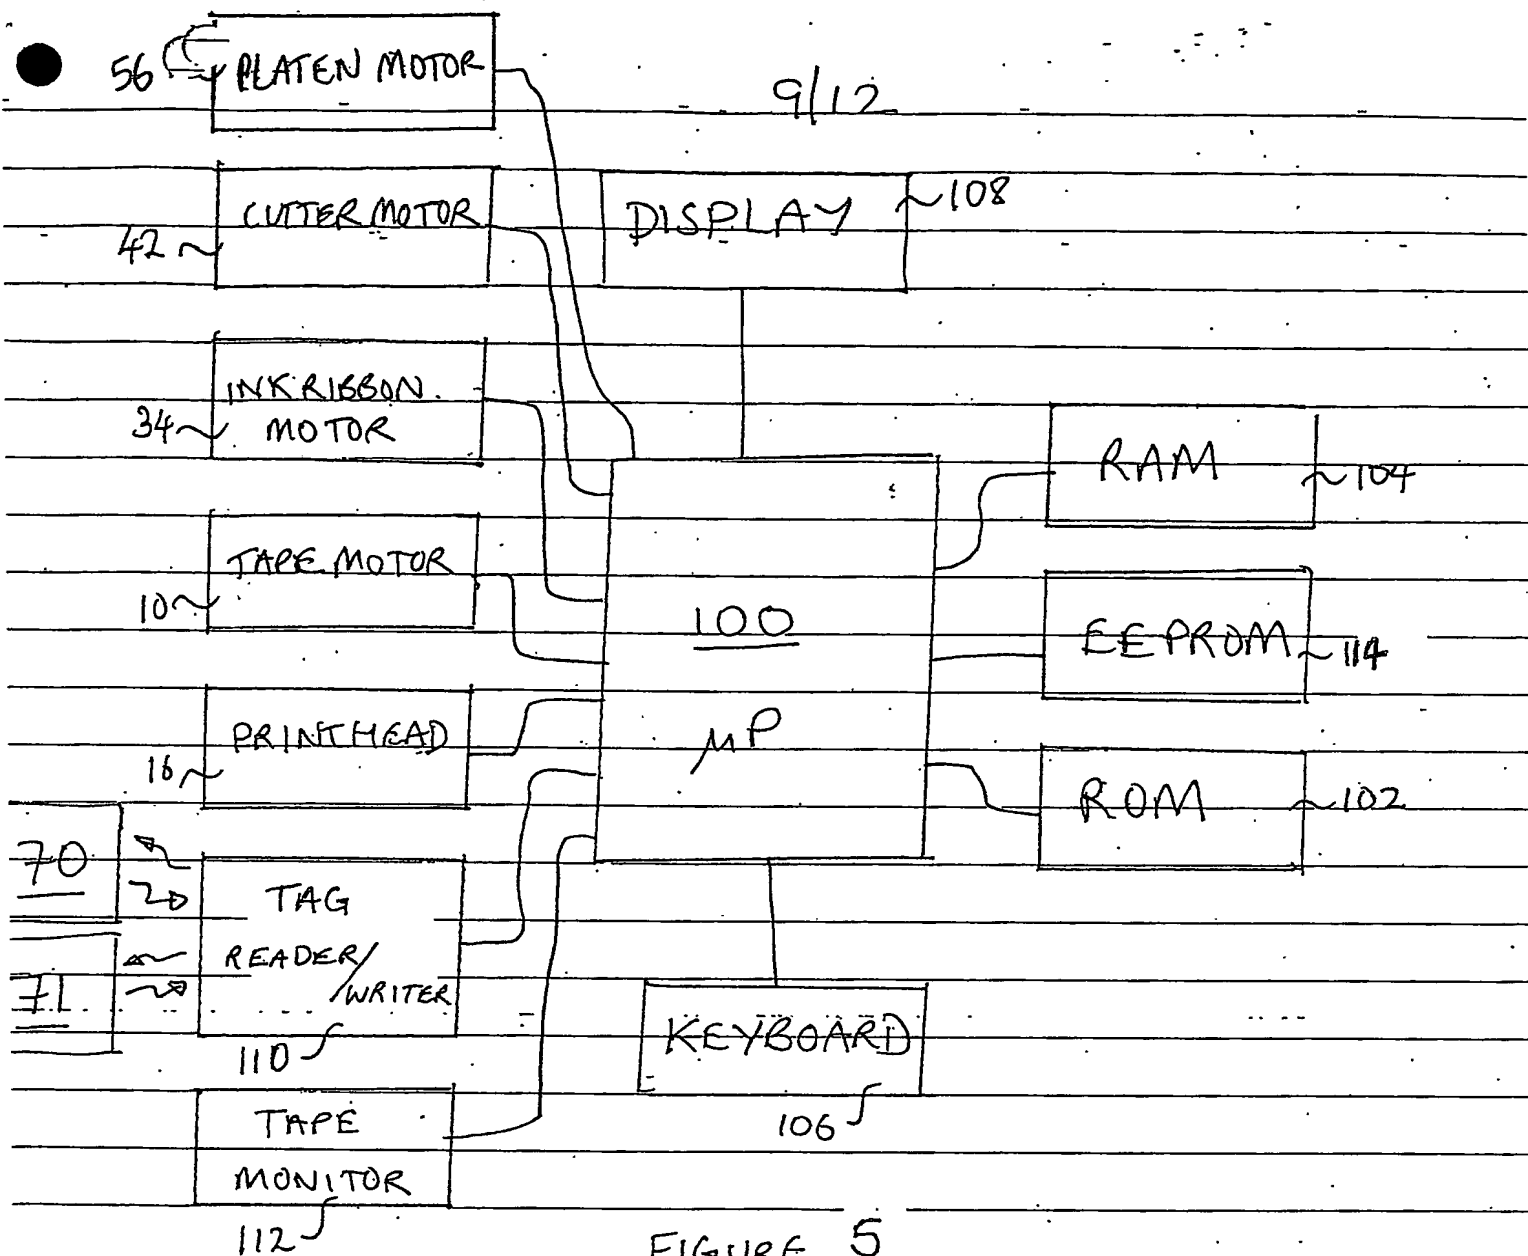 56 PLATEN MOTOR
9/12
CUTTER MOTOR
42
DISPLAY
108
INK RIBBON
34 MOTOR
RAM
104
TAPE MOTOR
10
100
EEPROM
114
PRINTHEAD
16
μP
ROM
102
70
TAG
READER/
/WRITER
71
110
KEYBOARD
106
TAPE
MONITOR
112
FIGURE 5